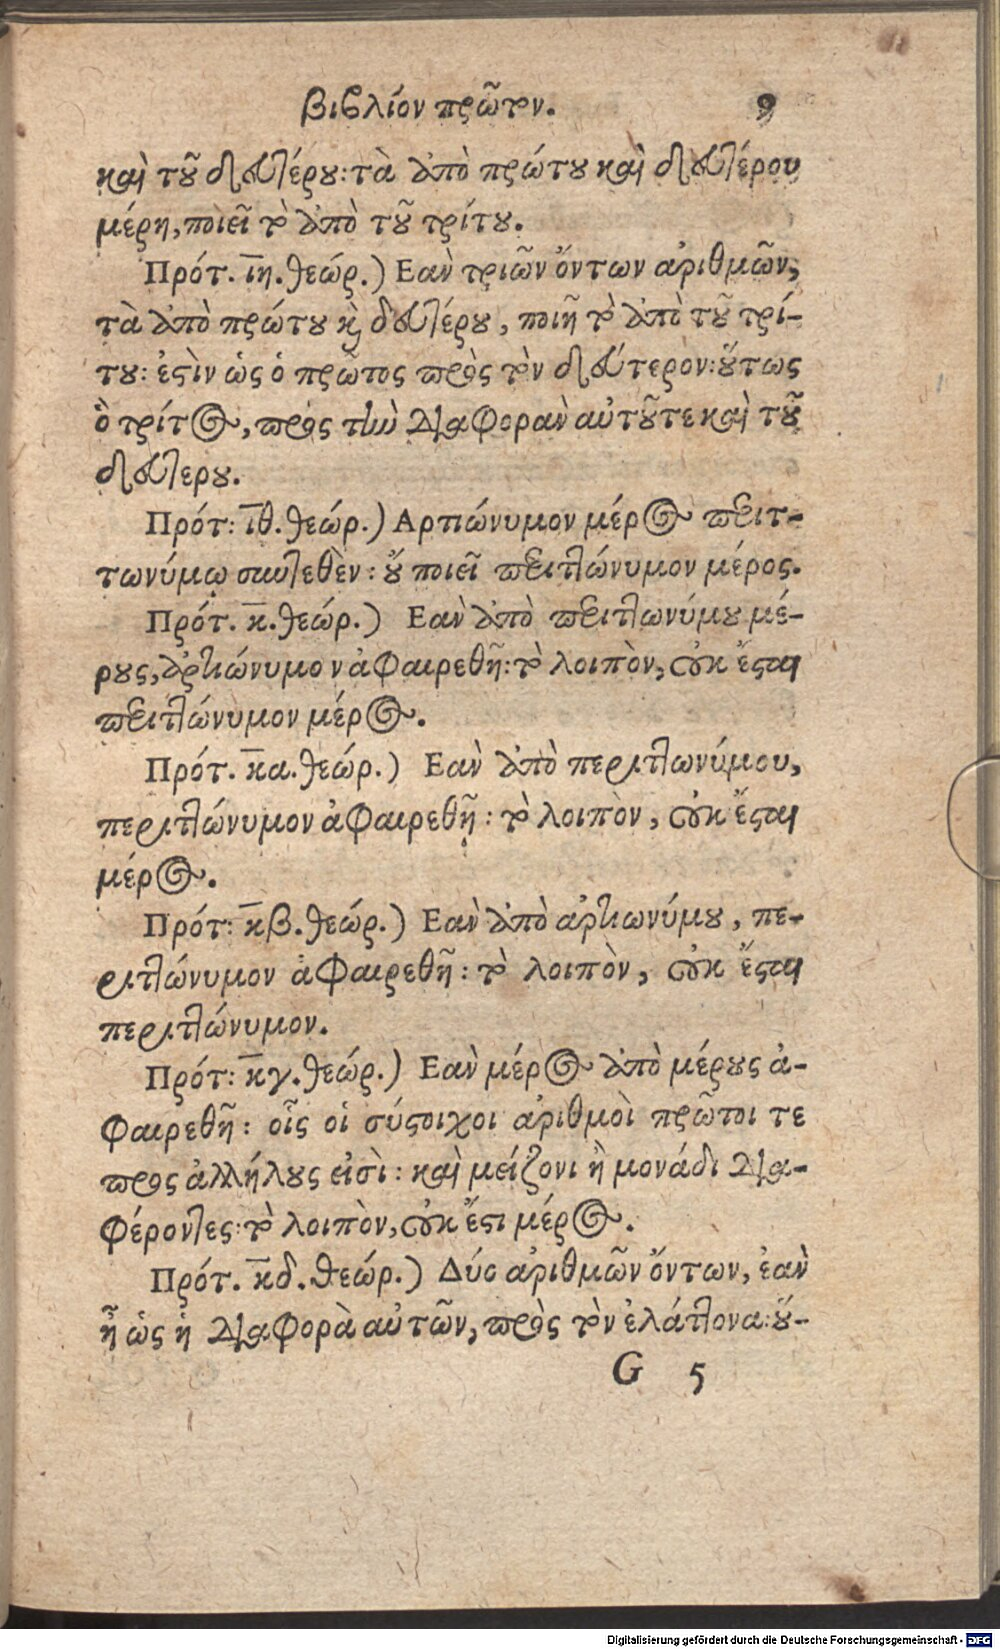 βιβλίον πρῶτον. 9
καὶ τοῦ δευτέρου: τὰ ἀπὸ πρώτου καὶ δευτέρου
μέρη, ποιεῖ τὸ ἀπὸ τοῦ τρίτου.
Πρότ. ιη. θεώρ.) Εαν τριῶν ὄντων ἀριθμῶν,
τὰ ἀπὸ πρώτου κὶ δευτέρου, ποιῆ τὸ ἀπὸ τοῦ τρί-
του: ἐστὶν ὡς ὁ πρῶτος πρὸς τὸν δεύτερον: οὕτως
ὁ τρίτος, πρὸς τὴν διαφορὰν αὐτοῦτε καὶ τοῦ
δευτερου.
Πρότ: ιθ. θεώρ.) Αρτιώνυμον μέρος περιτ-
τωνύμῳ συντεθὲν: οὐ ποιεῖ περιττώνυμον μέρος.
Πρότ. κ. θεώρ.) Εαν ἀπὸ περιττωνύμου μέ-
ρους, ἀρτιώνυμον ἀφαιρεθῆ: τὸ λοιπὸν, οὐκ ἔσται
περιττώνυμον μέρος.
Πρότ. κα. θεώρ.) Εαν ἀπὸ περιττωνύμου,
περιττώνυμον ἀφαιρεθῇ: τὸ λοιπὸν, οὐκ ἔσται
μέρος.
Πρότ: κβ. θεώρ.) Εαν ἀπὸ ἀρτιωνύμου, πε-
ριττώνυμον ἀφαιρεθῆ: τὸ λοιπὸν, οὐκ ἔσται
περιττώνυμον.
Πρότ: κγ. θεώρ.) Εαν μέρος ἀπὸ μέρους ἀ-
φαιρεθῆ: οἷς οἱ σύστοιχοι ἀριθμοὶ πρῶτοι τε
προς ἀλλήλους εἰσὶ: καὶ μείζονι ἢ μονάδι δια-
φέροντες: τὸ λοιπὸν, οὐκ ἔστι μέρος.
Πρότ. κδ. θεώρ.) Δύο ἀριθμῶν ὄντων, ἐαν
ἦ ὡς ἡ διαφορὰ αὐτῶν, πρὸς τὸν ἐλάττονα: οὕ-
G 5
Digitalisierung gefördert durch die Deutsche Forschungsgemeinschaft - DFG